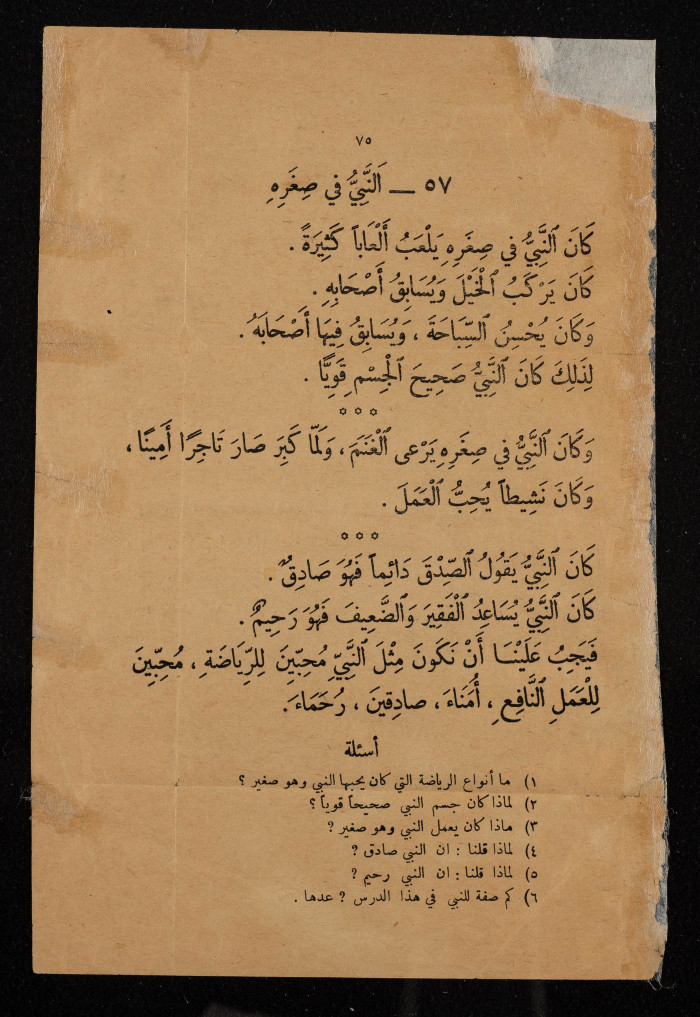 ٧٥
٥٧ — اَلنَّبِيُّ في صِغَرِهِ
كَانَ ٱلنَّبِيُّ في صِغَرِهِ يَلْعَبُ أَلْعَاباً كَثِيرَةً .
كَانَ يَرْكَبُ ٱلْخَيْلَ وَيُسَابِقُ أَصْحَابِهِ .
وَكَانَ يُحْسِنُ ٱلسِّبَاحَةَ ، وَيُسَابِقُ فِيهَا أَصْحَابَهُ .
لِذَلِكَ كَانَ ٱلنَّبِيُّ صَحِيحَ ٱلْجِسْمِ قَوِيًّا .
***
وَكَانَ ٱلنَّبِيُّ في صِغَرِهِ يَرْعى ٱلْغَنَمَ ، وَلَمّا كَبِرَ صَارَ تَاجِرًا أَمِينًا ،
وَكَانَ نَشِيطاً يُحِبُّ ٱلْعَمَلَ .
***
كَانَ ٱلنَّبِيُّ يَقُولُ ٱلصِّدْقَ دَائِماً فَهُوَ صَادِقٌ .
كَانَ ٱلنَّبِيُّ يُسَاعِدُ ٱلْفَقِيرَ وَٱلضَّعِيفَ فَهُوَ رَحِيمٌ .
فَيَجِبُ عَلَيْنَا أَنْ نَكُونَ مِثْلَ ٱلنَّبِيِّ مُحِبِّينَ لِلرِّيَاضَةِ ، مُحِبِّينَ
لِلْعَمَلِ ٱلنَّافِعِ ، أُمَنَاءَ ، صادِقينَ ، رُحَمَاءَ .
أسئلة
١) ما أنواع الرياضة التي كان يحبها النبي وهو صغير ؟
٢) لماذا كان جسم النبي صحيحاً قوياً ؟
٣) ماذا كان يعمل النبي وهو صغير ؟
٤) لماذا قلنا : ان النبي صادق ؟
٥) لماذا قلنا : ان النبي رحيم ؟
٦) كم صفة للنبي في هذا الدرس ؟ عدها .